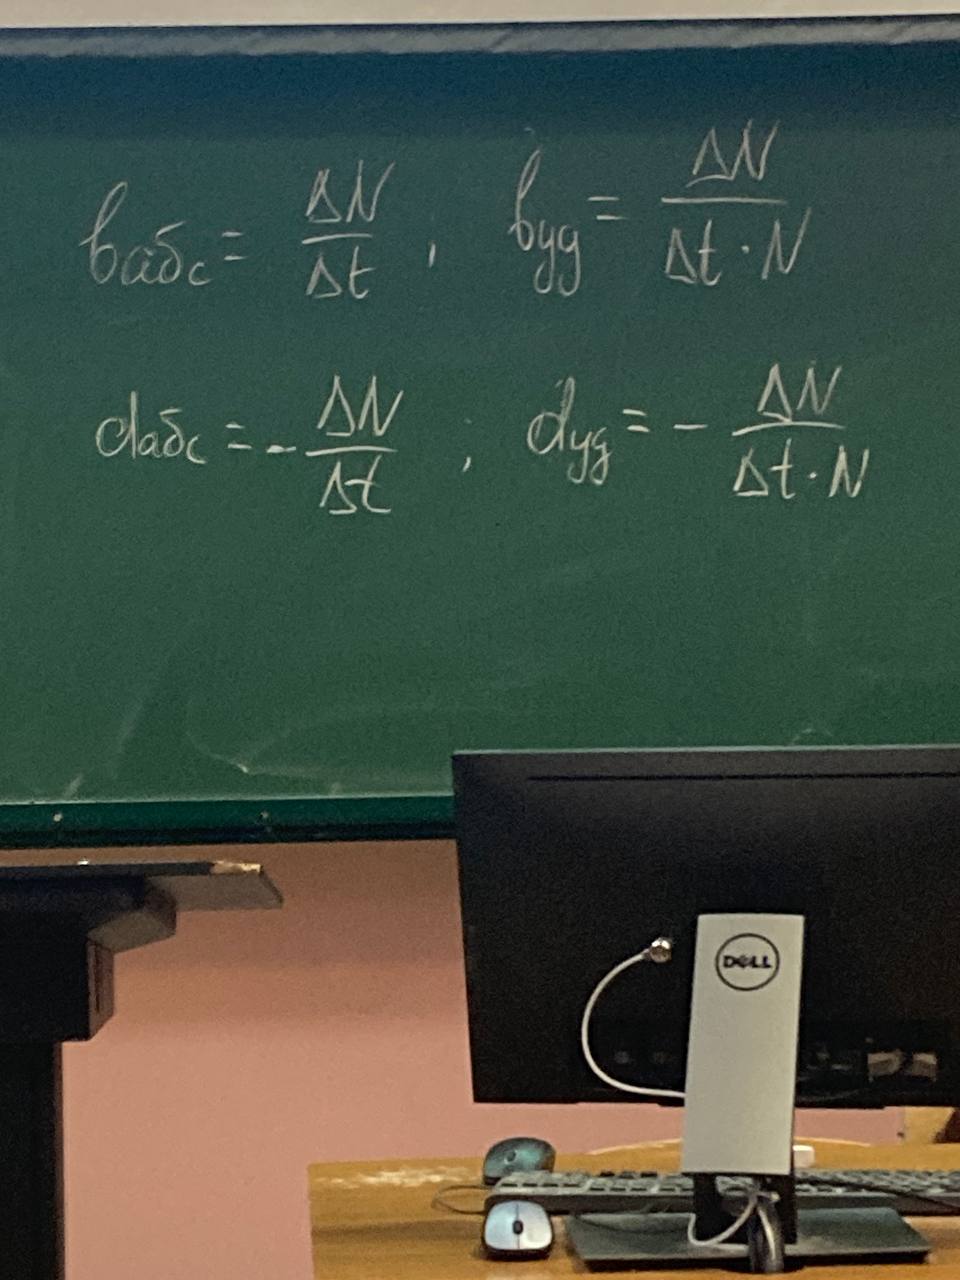 bабс = ΔN/Δt , bуд = ΔN/Δt·N
dабс = - ΔN/Δt ; dуд = - ΔN/Δt·N
DELL